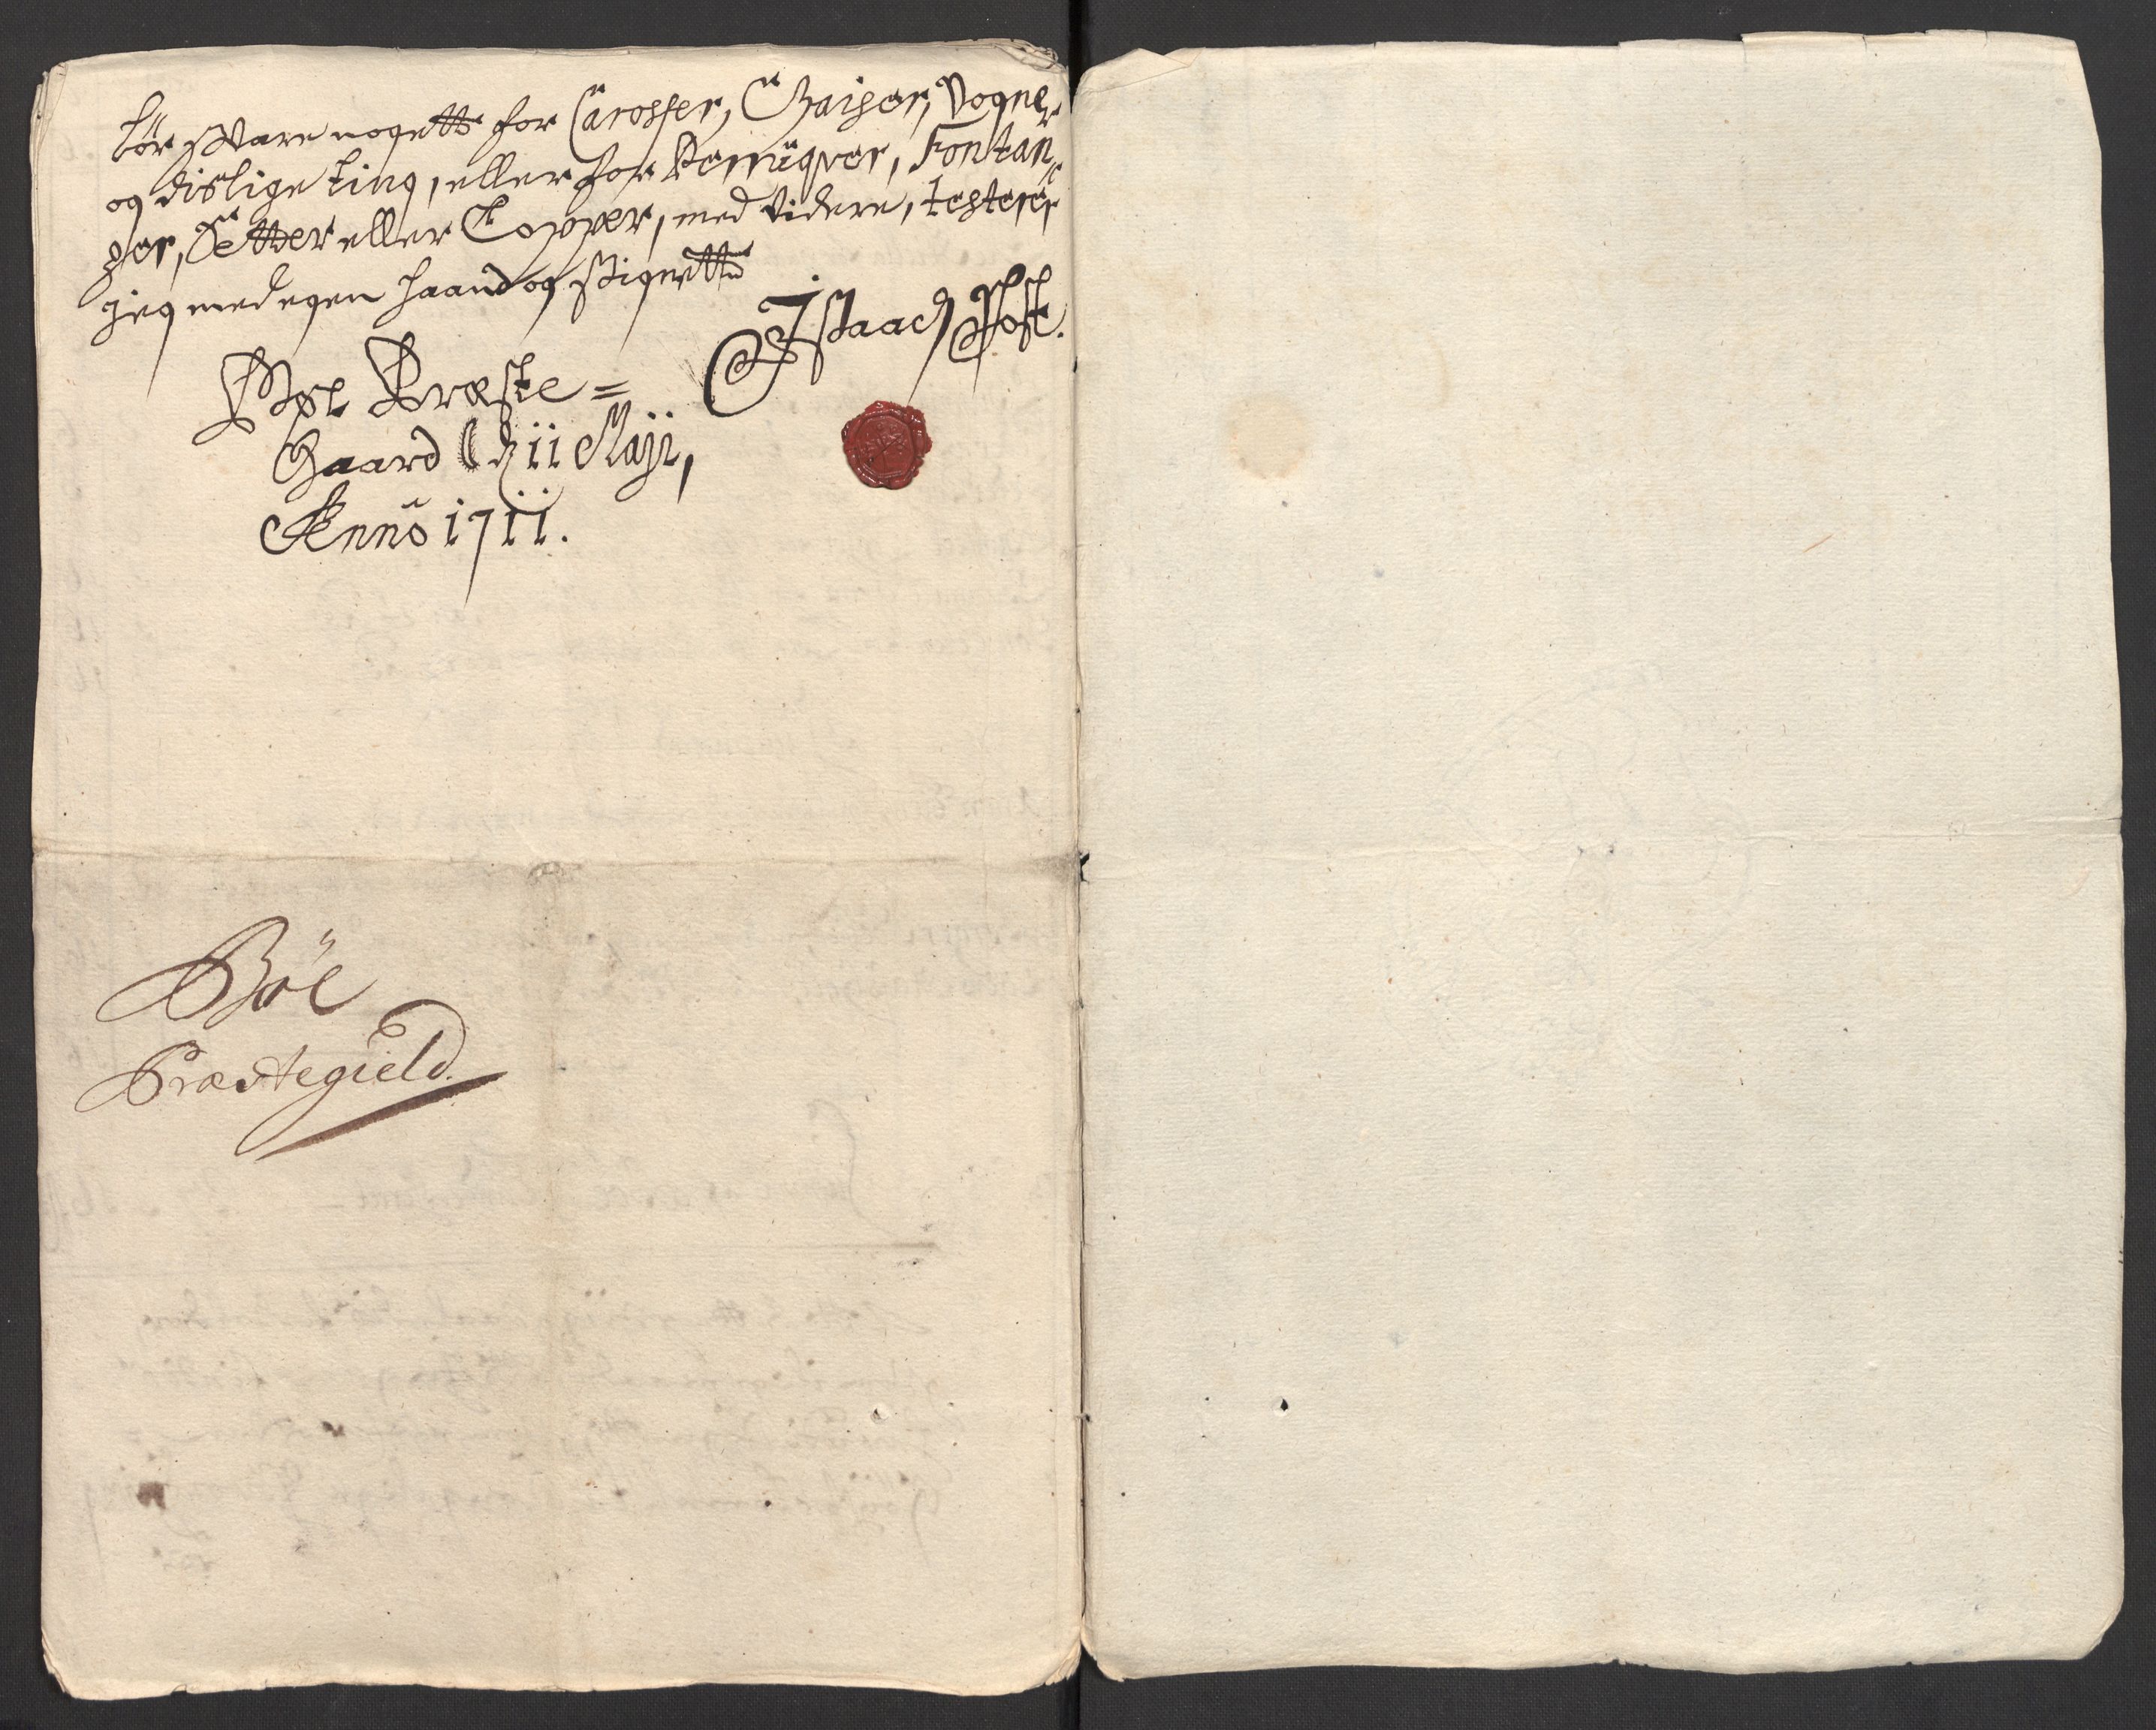 bør svare nogett for Carosser, Chaiser, Vogner
og dislige ting, eller for Perruqver, Fontan=
ger, Setter eller Topper, med videre, testerer
jeg med egen haand og Signette
Isaach Post.
Bøe Præste=
Gaard d 11 Maji,
Anno 1711.
Bøe
Præstegield.